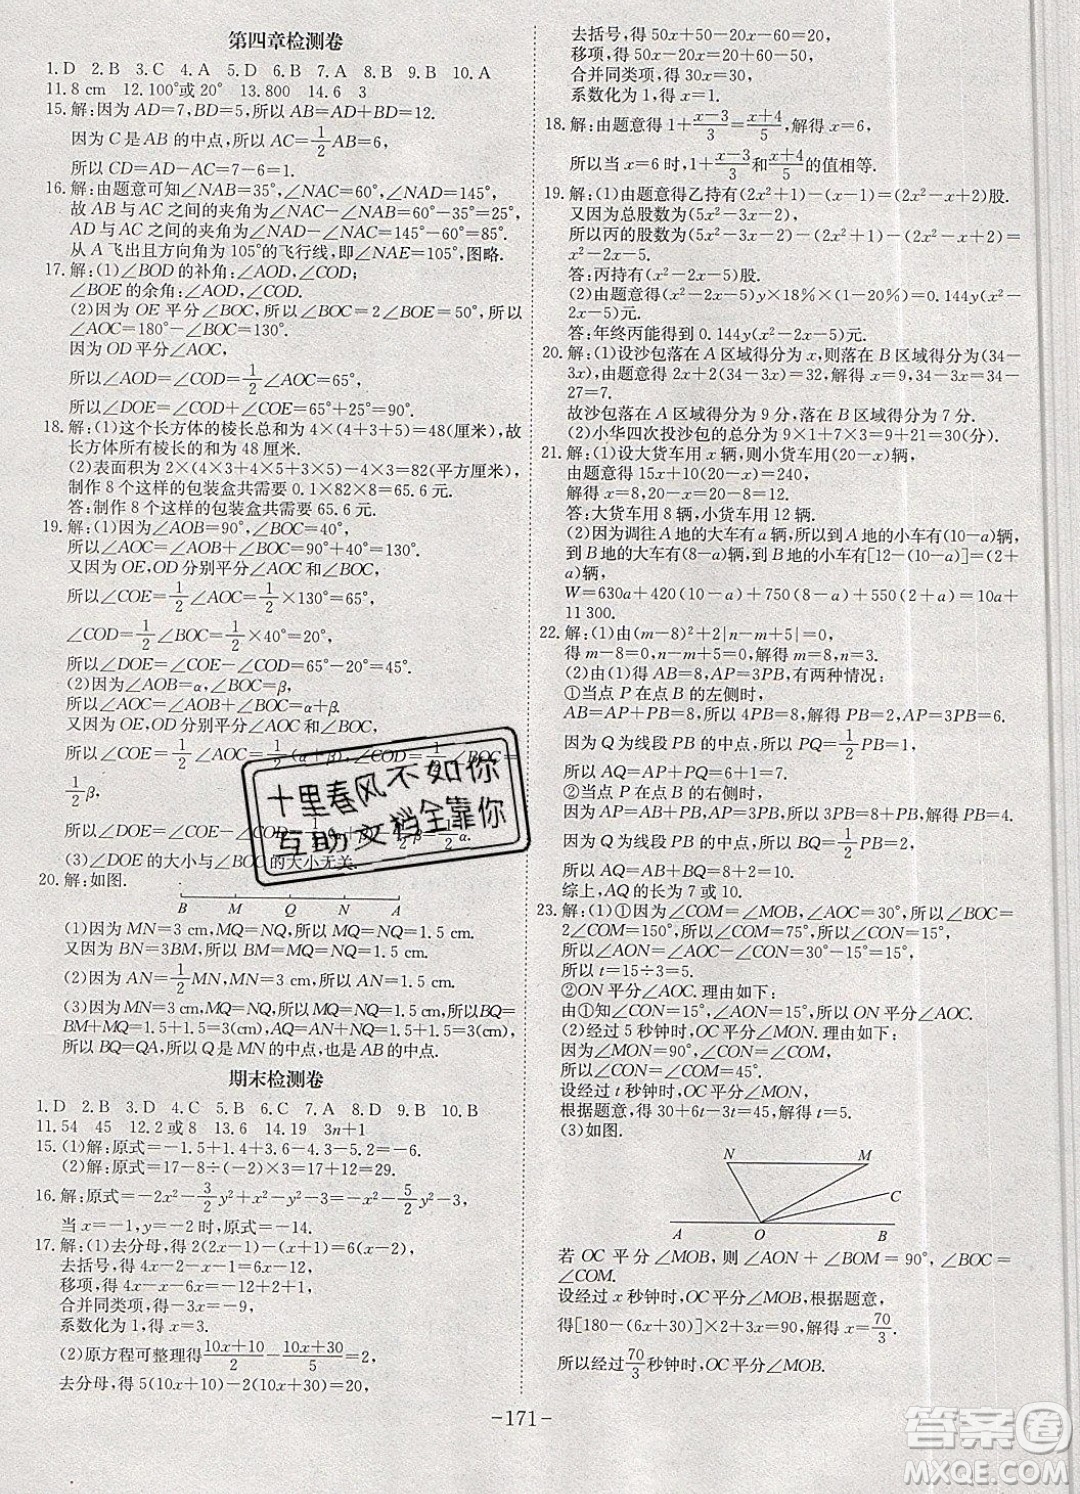 第四章检测卷
1.D 2.B 3.C 4.A 5.D 6.B 7.A 8.B 9.B 10.A
11.8 cm 12.100°或 20° 13.800 14.6 3
15.解:因为 AD=7,BD=5,所以 AB=AD+BD=12.
因为 C 是 AB 的中点,所以 AC=1/2 AB=6,
所以 CD=AD-AC=7-6=1.
16.解:由题意可知∠NAB=35°,∠NAC=60°,∠NAD=145°,
故 AB 与 AC 之间的夹角为∠NAC-∠NAB=60°-35°=25°,
AD 与 AC 之间的夹角为∠NAD-∠NAC=145°-60°=85°.
从 A 飞出且方向角为 105°的飞行线,即∠NAE=105°,图略.
17.解:(1)∠BOD 的补角:∠AOD,∠COD;
∠BOE 的余角:∠AOD,∠COD.
(2)因为 OE 平分∠BOC,所以∠BOC=2∠BOE=50°,
所以∠AOC=180°-∠BOC=130°.
因为 OD 平分∠AOC,
所以∠AOD=∠COD=1/2∠AOC=65°,
所以∠DOE=∠COD+∠COE=65°+25°=90°.
18.解:(1)这个长方体的棱长总和为 4×(4+3+5)=48(厘米),故
长方体所有棱长的和为 48 厘米.
(2)表面积为 2×(4×3+4×5+3×5)=82(平方厘米),
制作 8 个这样的包装盒共需要 0.1×82×8=65.6 元.
答:制作 8 个这样的包装盒共需要 65.6 元.
19.解:(1)因为∠AOB=90°,∠BOC=40°,
所以∠AOC=∠AOB+∠BOC=130°.
又因为 OE,OD 分别平分∠AOC,∠BOC,
所以∠COE=1/2∠AOC=1/2×130°=65°,
∠COD=1/2∠BOC=1/2×40°=20°,
所以∠DOE=∠COE-∠COD=65°-20°=45°.
(2)因为∠AOB=α,∠BOC=β,
所以∠AOC=∠AOB+∠BOC=α+β.
又因为 OE,OD 分别平分∠AOC 和∠BOC,
所以∠COE=1/2∠AOC=1/2(α+β),∠COD=1/2∠BOC=
1/2β,
所以∠DOE=∠COE-∠COD=1/2α+1/2β-1/2β=1/2α.
(3)∠DOE 的大小与∠BOC 的大小无关.
20.解:如图.
B M Q N A
(1)因为 MN=3 cm,所以 MQ=NQ=1.5 cm.
又因为 BN=3BM,所以 BM=MQ=NQ=1.5 cm.
(2)因为 AN=1/2MN,MN=3 cm,所以 AN=1.5 cm.
(3)因为 MN=3 cm,MQ=NQ,所以 MQ=NQ=1.5 cm,所以 BQ=
BM+MQ=1.5+1.5=3(cm),AQ=AN+NQ=1.5+1.5=3(cm),
所以 BQ=QA,所以 Q 是 MN 的中点,也是 AB 的中点.
期末检测卷
1.D 2.B 3.D 4.C 5.D 6.C 7.A 8.D 9.B 10.B
11.54 45 12.2 或 8 13.6 14.19 3n+1
15.(1)解:原式=-1.5+1.4+3.6-4.3-5.2=-6.
(2)解:原式=17-8÷(-2)×3=17+12=29.
16.解:原式=-2x²-3/2y²+x²-y²-3=-x²-5/2y²-3,
当 x=-1,y=-2 时,原式=-14.
17.解:(1)去分母,得 2(2x-1)-(x+1)=6(x-2),
去括号,得 4x-2-x-1=6x-12,
移项,得 4x-x-6x=-12+2+1,
合并同类项,得-3x=-9,
系数化为 1,得 x=3.
(2)原方程可整理得(10x+10)/2-(10x+30)/5=2,
去分母,得 5(10x+10)-2(10x+30)=20,
去括号,得 50x+50-20x-60=20,
移项,得 50x-20x=20+60-50,
合并同类项,得 30x=30,
系数化为 1,得 x=1.
18.解:由题意得 1+(x-3)/3=(x+4)/5,解得 x=6,
所以当 x=6 时,1+(x-3)/3和(x+4)/5的值相等.
19.解:(1)由题意得乙持有(2x²+1)-(x+1)=(2x²-x)股.
又因为总股数为(5x²-3x-2)股,
所以丙持有(5x²-3x-2)-(2x²+1)-(2x²-x)=
x²-2x-3.
答:丙持有(x²-2x-3)股.
(2)由题意得(x²-2x-3)y×18%×(1-20%)=0.144y(x²-
2x-3)元.
答:年终丙能得到 0.144y(x²-2x-3)元.
20.解:(1)设沙包落在 A 区域得分为 x,则落在 B 区域得分为(34-
3x),由题意得 2x+2(34-3x)=32,解得 x=9,34-3x=34-
27=7.
故沙包落在 A 区域得分为 9 分,落在 B 区域得分为 7 分.
(2)小华四次投沙包的总分为 9×1+7×3=9+21=30(分).
21.解:(1)设大货车用 x 辆,则小货车用(20-x)辆,
由题意得 15x+10(20-x)=240,
解得 x=8.
答:大货车用 8 辆,小货车用 12 辆.
(2)因为调往 A 地的大车有 a 辆,所以到 A 地的小车有(10-a)辆,
到 B 地的大车有(8-a)辆,到 B 地的小车有[12-(10-a)]=(2+
a)辆,
W=630a+420(10-a)+750(8-a)+550(2+a)=10a+
11 300.
22.解:(1)由(m-8)²+2|n-m+5|=0,
得 m-8=0,n-m+5=0,所以 m=8,n=3.
(2)由(1)得 AB=8,AP=3PB,有两种情况:
①当点 P 在点 B 的左侧时,
AB=AP+PB=8,AP=3PB,所以 4PB=8,解得 PB=2,AP=3PB=6.
因为 Q 为线段 PB 的中点,所以 PQ=1/2PB=1,
所以 AQ=AP+PQ=6+1=7;
②当点 P 在点 B 的右侧时,
因为 AP=AB+BP,AP=3PB,所以 3PB=8+PB,
所以 PB=4.因为 Q 为线段 PB 的中点,所以 BQ=1/2PB=2,
所以 AQ=AB+BQ=8+2=10.
综上,AQ 的长为 7 或 10.
23.解:(1)①因为∠COM=∠MOB,∠AOC=30°,所以∠BOC=
2∠COM=150°,所以∠COM=75°,所以∠CON=15°,
所以∠AON=∠AOC-∠CON=30°-15°=15°,
所以 t=15÷3=5.
②ON 平分∠AOC.理由如下:
由①知∠CON=15°,∠AON=15°,所以 ON 平分∠AOC.
(2)经过 5 秒钟时,OC 平分∠MON.理由如下:
因为∠MON=90°,∠CON=∠COM,
所以∠CON=∠COM=45°.
设经过 t 秒钟时,OC 平分∠MON,
根据题意,得 30+6t-3t=45,解得 t=5.
(3)如图.
N M
C
A O B
若 OC 平分∠MOB,则∠AON+∠BOM=90°,∠BOC=
∠COM.
设经过 x 秒钟时,OC 平分∠MOB,根据题意,
得[180-(30+6x)]=1/2(90-3x),解得 x=70/3.
所以经过70/3秒钟时,OC 平分∠MOB.
-171-
十里春风不如你
互助文档全靠你
答案圈
MXQE.COM